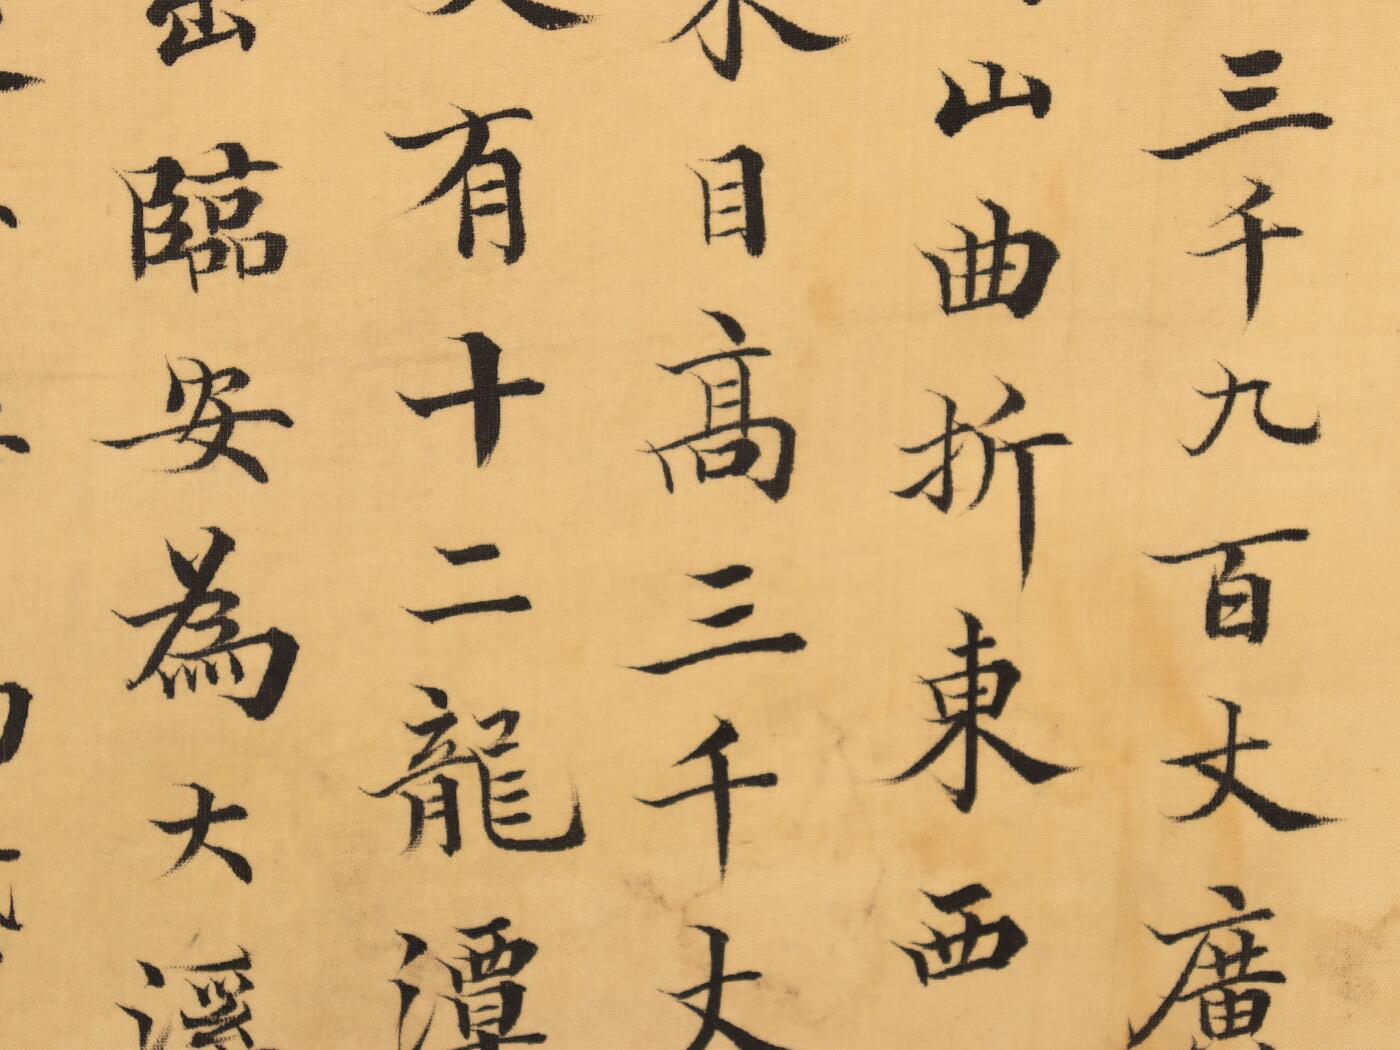 三千九百丈廣
山曲折東西
目高三千丈
有十二龍潭
臨安為大溪